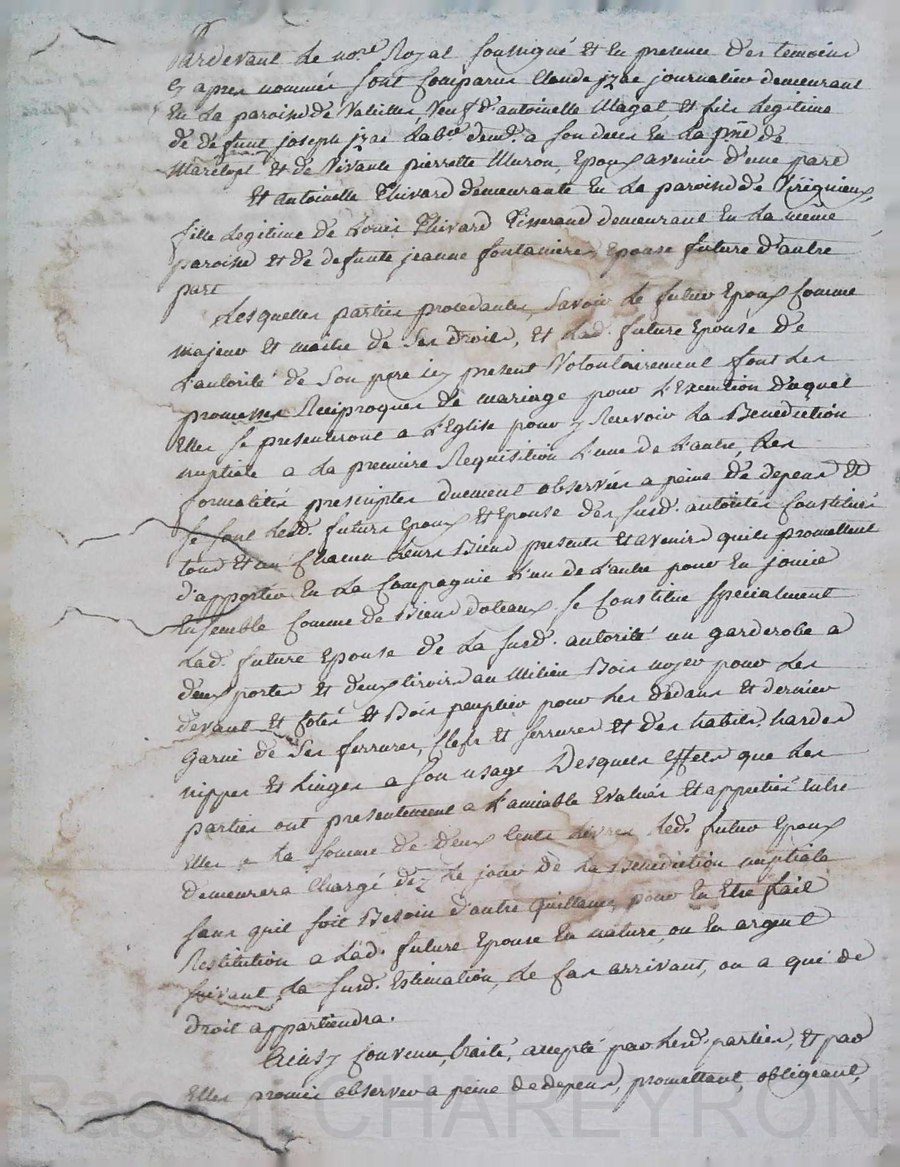 Pardevant le no.re Royal soussigné et en presence des temoins
cy apres nommés sont comparus Claude jzac journalier demeurant
en la paroisse de veuf d'antoinette Magat et fils legitime
de défunt joseph jzac lab.r dem.t a son deces en la p.sse de
Marclopt et de vivante pierrette Muron, Epoux avenir d'une part
Et antoinette Thivard demeurante en la paroisse de Virignieux,
fille legitime de Louis Thivard Tisserand demeurant en la meme
paroisse et de defunte jeanne fontanieres, epouse future d'autre
part
Lesquelles parties procedantes, savoir le futur Epoux comme
majeur et maitre de ses droits, et lad. future Epouse de
l'autorité de son pere icy present volontairement font les
promesses Reciproques de mariage pour l'Execution duquel
Elles se presenteront a l'Eglise pour y Recevoir la Benediction
nuptiale a la premiere Requisition l'une de l'autre, les
formalités prescriptes duement observées a peine de depens et
se sont lesd. futurs Epoux et Epouse des susd. autorités constitués
tous et un chacun leurs Biens presents et avenirs quils promettent
d'apporter en la compagnie l'un de l'autre pour en jouir
Ensemble comme de Biens doteaux. se constitue specialement
lad. future Epouse de la susd. autorité un garderobe a
deux portes et deux tiroirs au milieu Bois noyer pour les
devant et cotés et Bois peuplier pour les dedans et dernier
garni de ses ferrures, clefs et serrures et des habits, hardes
nippes et linges a son usage Desquels effets que les
parties ont presentement a l'amiable Evalués et appretiés entre
Elles a la somme de deux cents livres led. futur Epoux
demeurera chargé dez le jour de la Benediction nuptiale
sans quil soit Besoin d'autre quittance, pour en Etre fait
Restitution a lad. future Epouse en nature, ou en argent
suivant la susd. Estimation, le cas arrivant, ou a qui de
droit appartiendra.
Ainsy convenu, traité, accepté par lesd. parties, et par
Elles promis observer a peine de depens, promettant, obligeant,
Pascal CHAREYRON